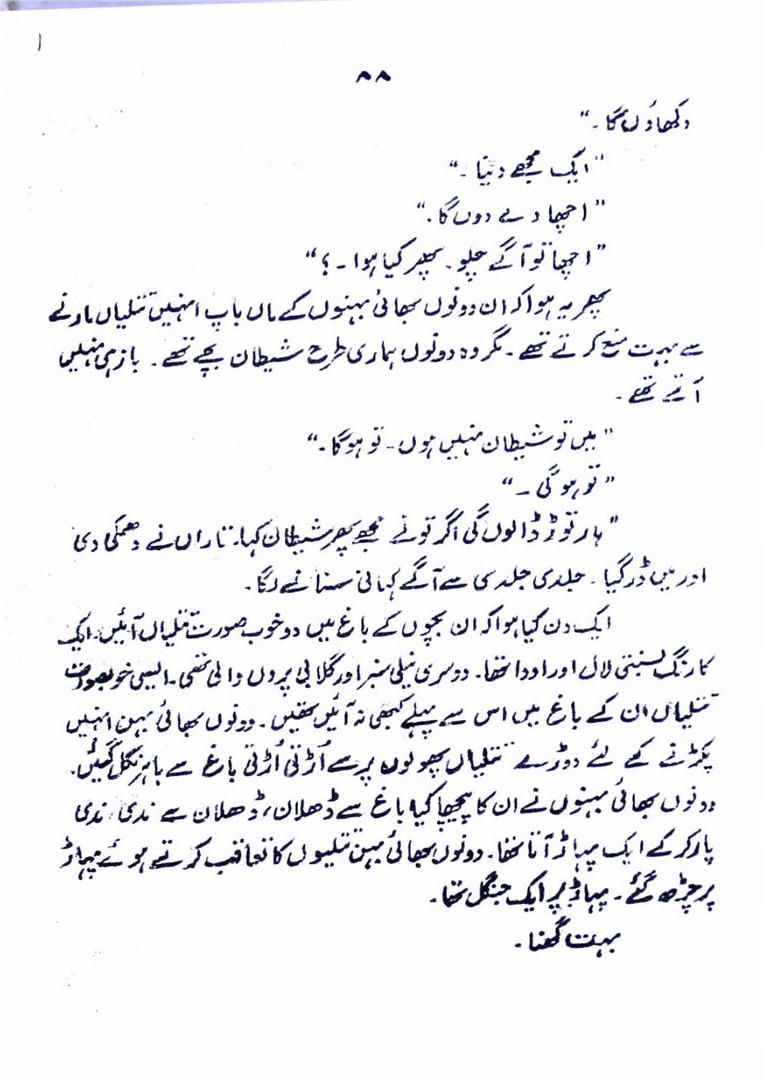 ۸۸
دکھاؤں گا۔"
"ایک مجھے دینا۔"
"اچھا دے دوں گا۔"
"اچھا تو آگے چلو۔ پھر کیا ہوا۔؟"
پھر یہ ہوا کہ ان دونوں بھائی بہنوں کے ماں باپ انہیں تتلیاں مارنے
سے بہت منع کرتے تھے۔ مگر وہ دونوں ہماری طرح شیطان بچے تھے۔ باز ہی نہیں
آتے تھے۔
"میں تو شیطان نہیں ہوں۔ تو ہو گا۔"
"تو ہو گی۔"
"ہار توڑ ڈالوں گی اگر تو نے مجھے پھر شیطان کہا۔ تاراں نے دھمکی دی
اور میں ڈر گیا۔ جلدی جلدی سے آگے کہانی سنانے لگا۔
ایک دن کیا ہوا کہ ان بچوں کے باغ میں دو خوب صورت تتلیاں آئیں۔ ایک
کا رنگ بسنتی لال اور اودا تھا۔ دوسری نیلی سبز اور گلابی پروں والی تھی۔ ایسی خوبصورت
تتلیاں ان کے باغ میں اس سے پہلے کبھی نہ آئیں تھیں۔ دونوں بھائی بہن انہیں
پکڑنے کے لئے دوڑے تتلیاں پھولوں پر سے اُڑتی اُڑتی باغ سے باہر نکل گئیں۔
دونوں بھائی بہنوں نے ان کا پیچھا کیا باغ سے ڈھلان، ڈھلان سے ندی، ندی
پار کر کے ایک پہاڑ آتا تھا۔ دونوں بھائی بہن تتلیوں کا تعاقب کرتے ہوئے پہاڑ
پر چڑھ گئے۔ پہاڑ پر ایک جنگل تھا۔
بہت گھنا۔